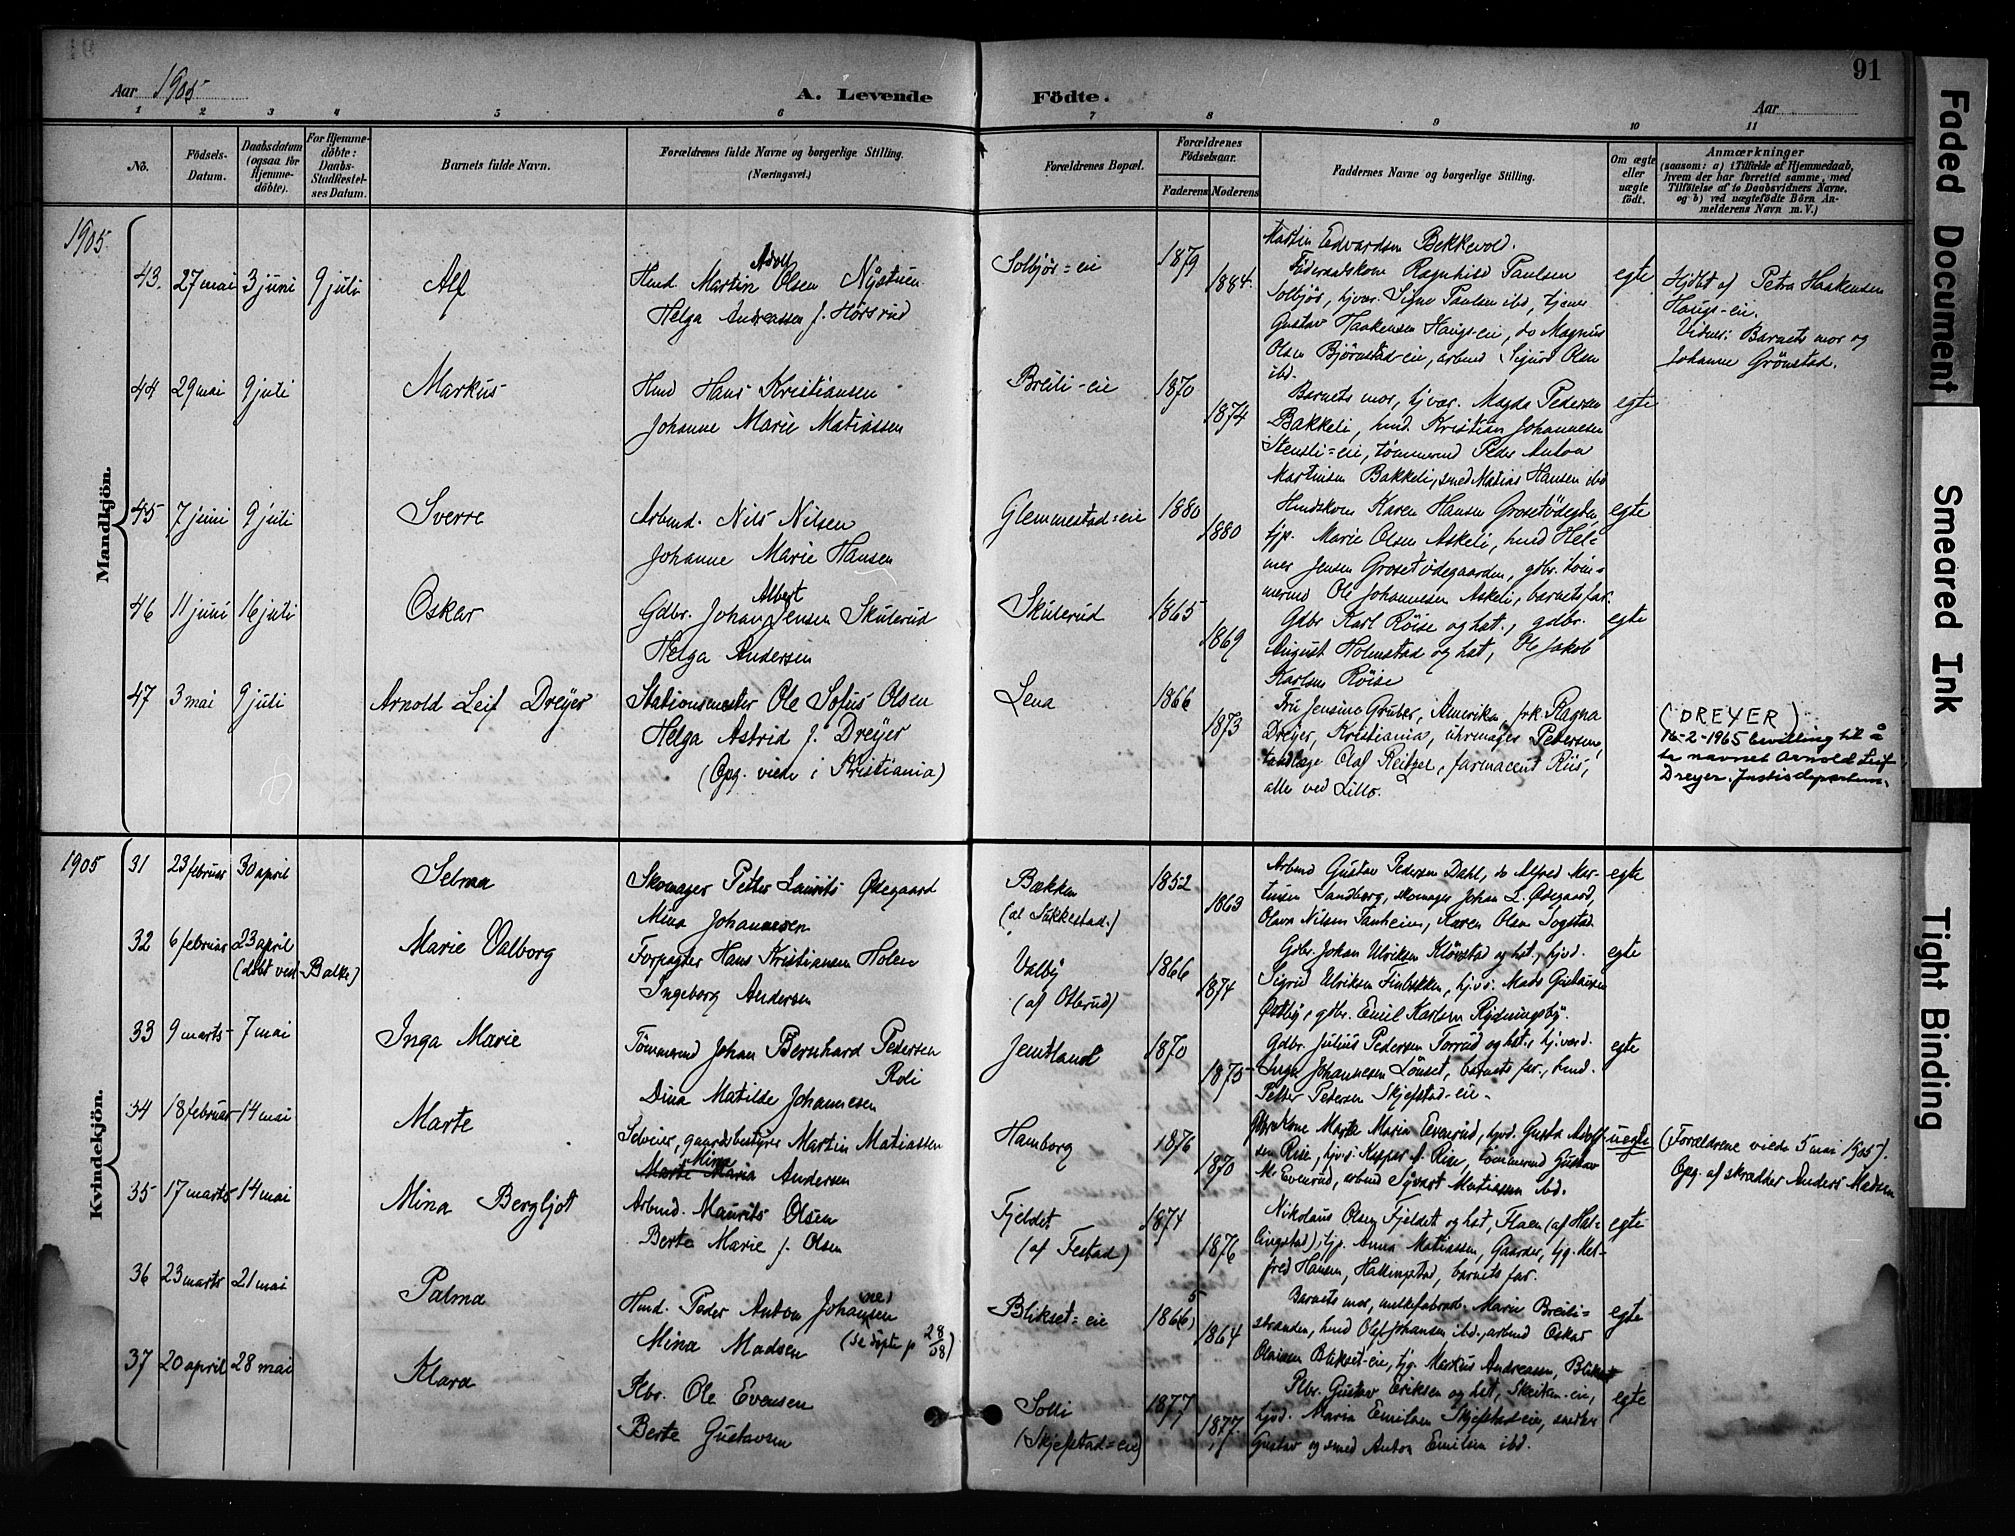 91
Aar 1905
A. Levende Födte.
Aar
1 2 3 4 5 6 7 8 9 10 11
No.
Födsels-Datum.
Daabsdatum (ogsaa for Hjemme-döbte).
For Hjemme-döbte: Daabs-Stadfæstel-ses Datum.
Barnets fulde Navn.
Forældrenes fulde Navne og borgerlige Stilling.
(Næringsvei.)
Forældrenes Bopæl.
Forældrenes Födselsaar.
Faderens Moderens
Faddernes Navne og borgerlige Stilling.
Om ægte eller uægte födt.
Anmærkninger
(saasom: a) i Tilfælde af Hjemmedaab,
hvem der har forrettet samme, med
Tilföielse af to Daabsvidners Navne.
og b) ved uægtefödte Börn An-
melderens Navn m. V.)
1905
Mandkjön.
43. 27 mai 3 juni 9 juli Alf
Hmd Martin Adolf Olsen Nystuen
Helga Andreassen f. Hörsrud
Solbjør=eie 1879 1884.
Martin Edvardsen Bekkevold.
Ragnhild Paulsen
Solbjør, tjvar. Signe Paulsen ibd, tjener
Gustav Haakensen Haugs-eie, do Magnus
Olsen Bjørnstad-eie, arbmd Sigurd Olsen
ibd.
egte
Hjdbt af Petra Haakensen
Haugs-eie.
Vidner: Barnets mor og
Johanne Grönstad.
44 29 mai 9 juli Markus
Hmd Hans Kristiansen
Johanne Marie Matiassen
Breili-eie 1870 1874
Barnets mor, tjvar. Magda Pedersen
Bakkeli, hmd. Kristian Johannesen
Stensli=eie, tömmermd Peder Anton
Martinsen Bakkeli, smed Matias Hansen ibd
egte
45 7 juni 9 juli Sverre
Arbmd. Nils Nilsen
Johanne Marie Hansen
Glemmestad=eie 1880 1880
Hmdskone Karen Hansen Grosetödegden
tjp. Marie Olsen Askeli, hmd Hel-
mer Jensen Grosetödegaarden, gdbr. töm-
mermd Ole Johannesen Askeli, barnets far.
egte
46 11 juni 16 juli Oskar
Gdbr. Johan Albert Jensen Skulerud
Helga Andersen
Skulerud 1865 1869
Gdbr Karl Röise og hst., gdbr.
August Holmstad og hst, Ole Jakob
Karlsen Röise
egte
47 3 mai 9 juli Arnold Leif Dreyer
Stationsmester Ole Sofus Olsen
Helga Astrid f. Dreyer
(Opg. viede i Kristiania)
Lena 1866 1873
Fru Jensine Gruber, Amerika, frk Ragna
Dreyer, Kristiania, uhrmager Petersen,
tandlæge Olaf Reitzel, farmaceut Riis,
alle ved Lillo.
(DREYER)
16-2-1965 bevilling til å
ta navnet Arnold Leif
Dreyer. Justisdepartem.
1905
Kvindekjön.
31 23 februar 30 april Selma
Skomager Petter Laurits Ødegaard
Mina Johannesen
Bækken
(al Sukkestad.) 1852 1863
Arbmd Gustav Pedersen Dahl, do Alfred Mar-
tinsen Sandberg, skomager Johan L. Ødegaard,
Olava Nilsen Tanheim, Karen Olsen Sogstad.
egte
32 6 februar 23 april
(döbt ved Balke)
Marie Valborg
Forpagter Hans Kristiansen Holen
Ingeborg Andersen
Valby
(af Osbrud) 1866 1874
Gdbr. Johan Ulriksen Klönstad og hst., hjvd.
Sigrid Ulriksen Finbekken, hjvd. Mads Gustavsen
Østby, gdbr. Emil Karlsen Rydningsby.
egte
33 9 marts 7 mai Inga Marie
Tömmermd Johan Bernhard Pedersen
Roli
Dina Matilde Johannesen
Jemtland 1870 1875
Gdbr. Julius Pedersen Torrud og hst., hjvard.
Inga Johannesen Lönset, barnets far, hmd.
Petter Petersen Skjefstad-eie.
egte
34 18 februar 14 mai Marte
Selveier, gaardsbestyrer Martin Matiassen
Marte Maria Mina Andersen
Hamborg 1876 1870
Marte Maria Evenrud, hjvd. Gusta Adolf-
sen Rise, hjvd. Kasper J. Rise, tömmermd Gustav
M. Evenrud, arbmd Syvart Matiassen ibd.
uegte
(Forældrene viede 5 mai 1905).
Opg. af skrædder Anders Madsen
35 17 marts 14 mai Mina Bergljot
Arbmd. Maurits Olsen
Berte Marie f. Olsen
Fjeldet
(af Festad) 1874 1876
Nikolaus Olsen Fjeldet og hst, Flaen (af Hal-
lingstad), tjp. Anna Matiassen, Gaarder, tjg. Hel-
fred Hansen, Hallingstad, barnets far.
egte
36 23 marts 21 mai Palma
Hmd. Peder Anton Johansen (nes)
Mina Madsen (se döpte p 28/08)
Blikset=eie 1866 (5) 1864
Barnets mor, Marie Breili=
stranden, hmd Olaf Johansen ibd., arbmd Oskar
Olaisen Blikset-eie, tjg. Markus Andreasen, Blikset
egte
37 20 april 28 mai Klara
Plbr. Ole Evensen
Berte Gustavsen
Solli
(Skjefstad=eie) 1877 1877.
Plbr. Gustav Eriksen og hst, Skeiten-eie,
hjvd. Maria Emilsen Skjefstad-eie, snedker
Gustav og smed Anton Emilsen ibd.
egte
Faded Document
Smeared Ink
Tight Binding